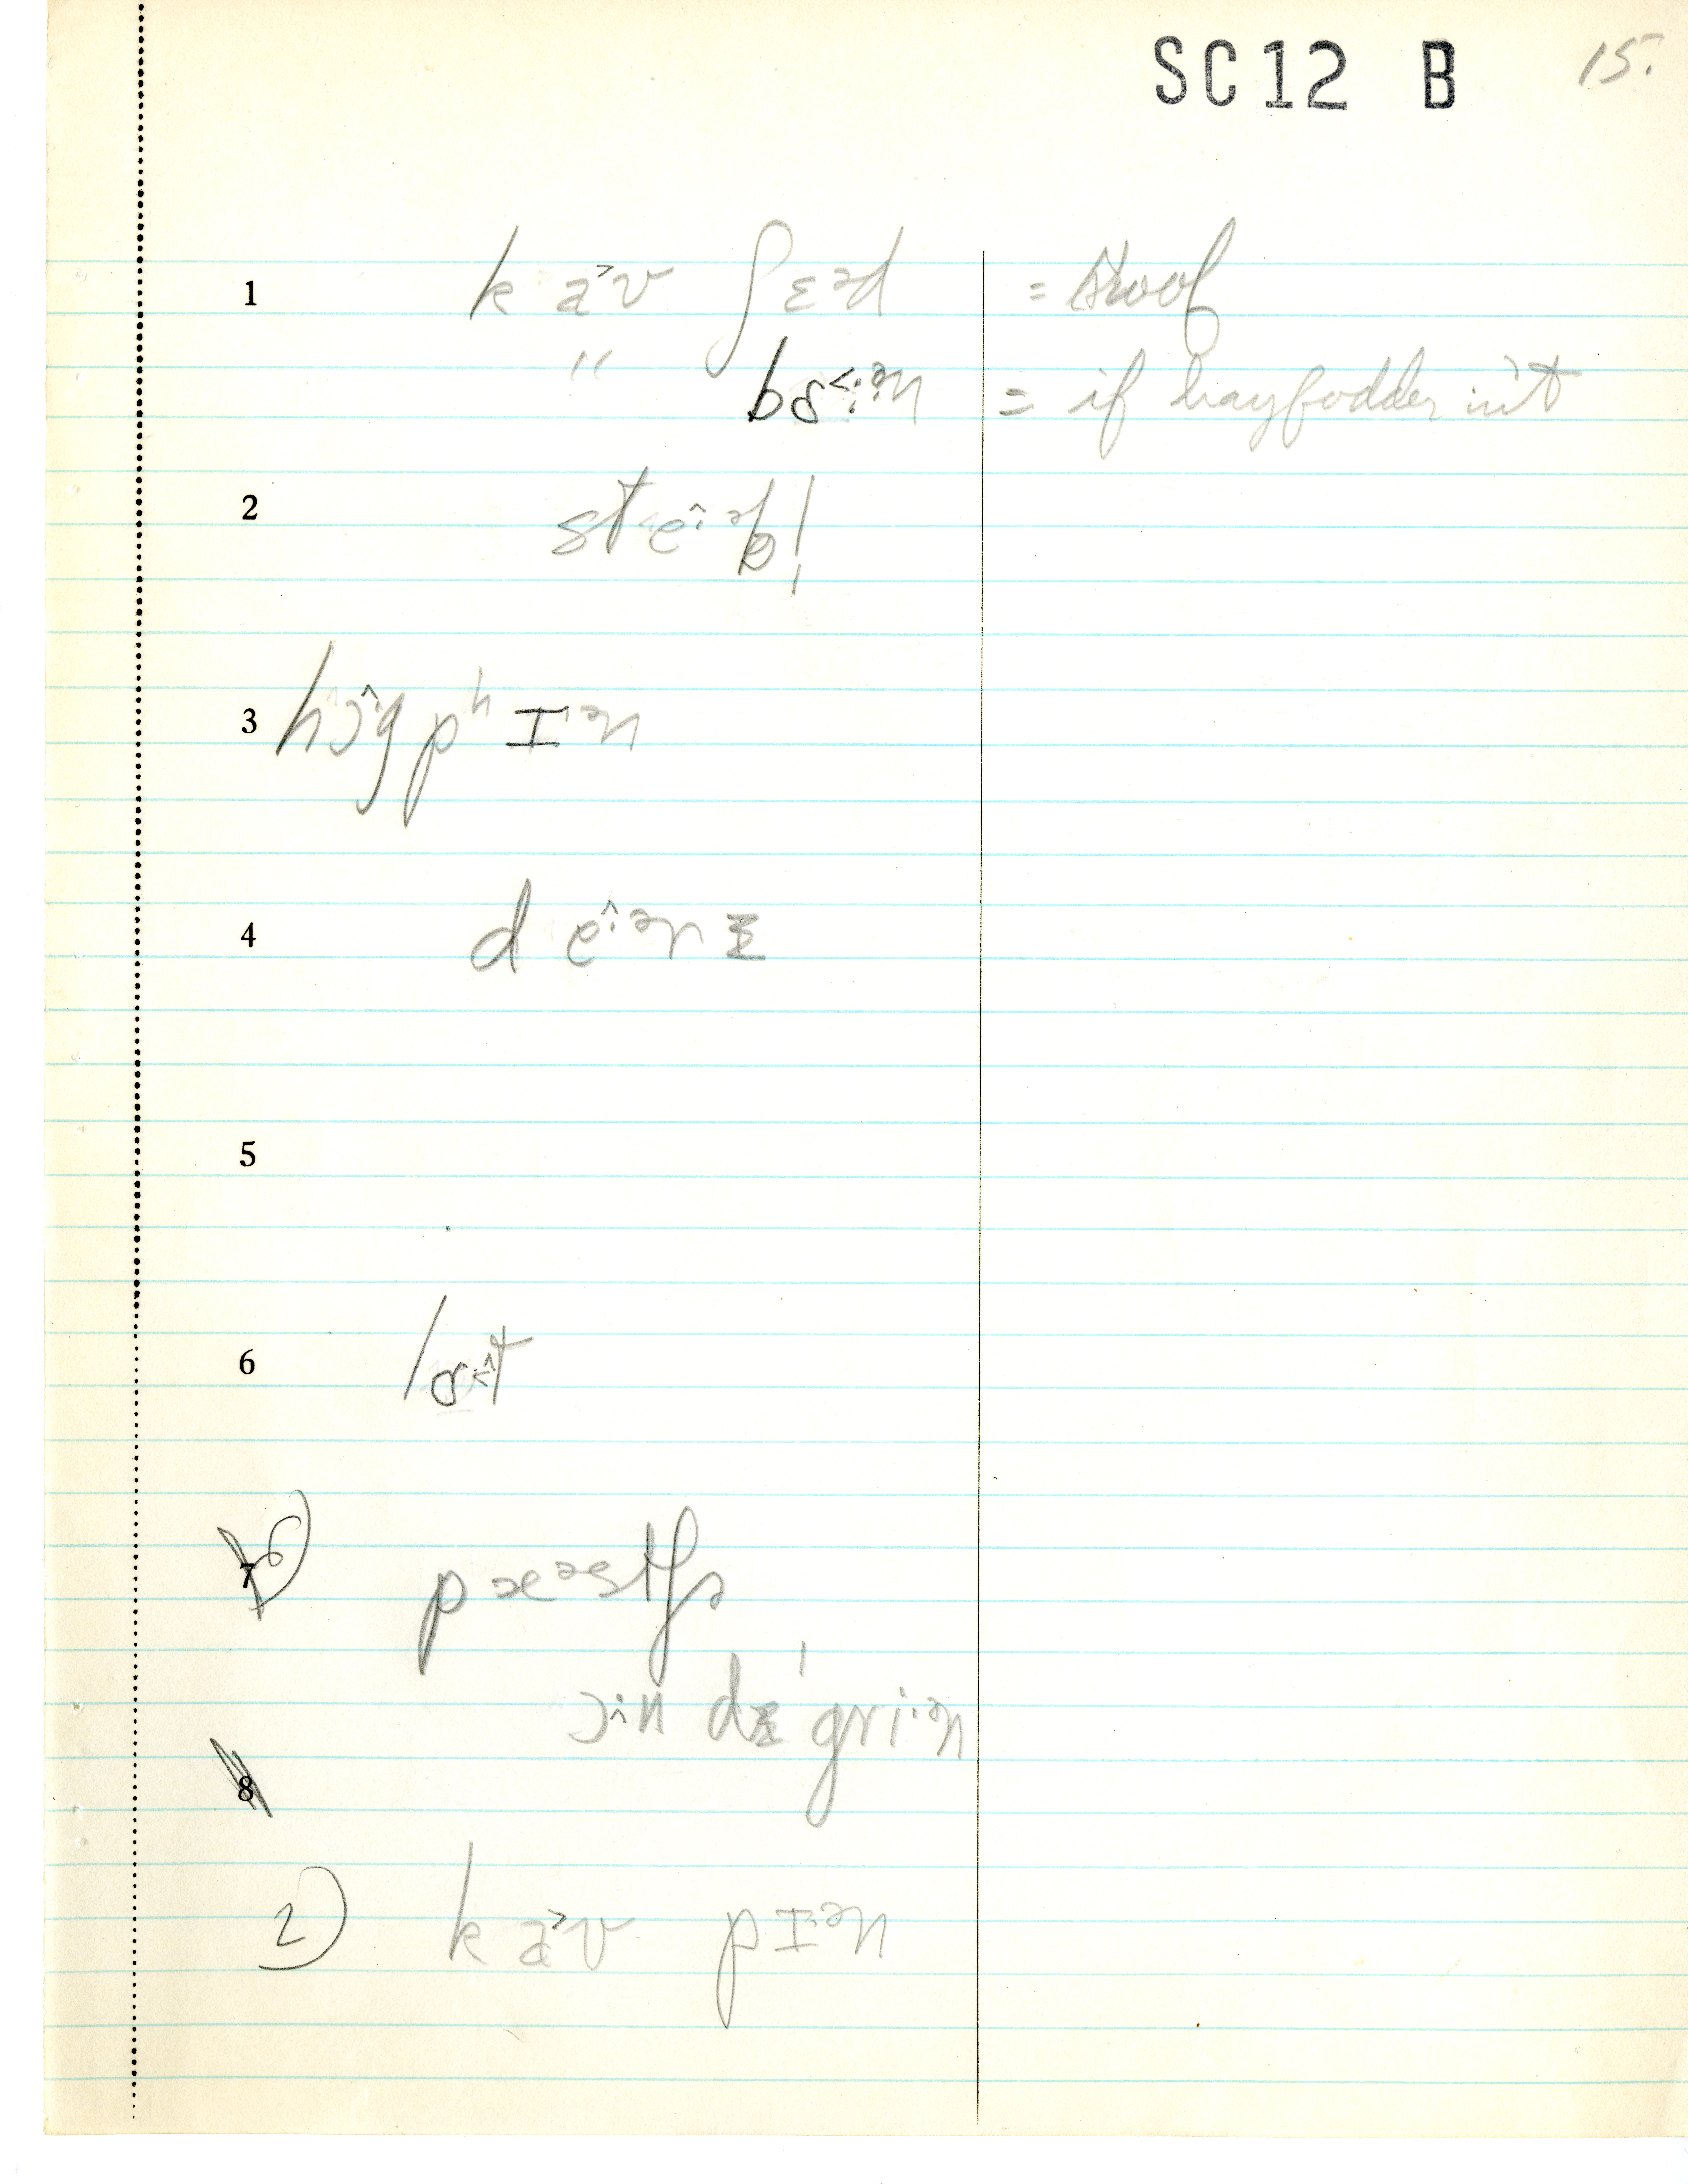 SC12 B 15.
1 ka˃v ʃɛəd = stoof
" bɑ˂:ən = if hayfodder in't
2 ste^·əb!
3 hɔ^·g pʰɪ·ən
4 de^·ərɪ
5
6 lɑ·t
7 6) pæəstʃə
ɔ·^n dɪ'gri·ən
8
2) ka˃v pɪ·ən